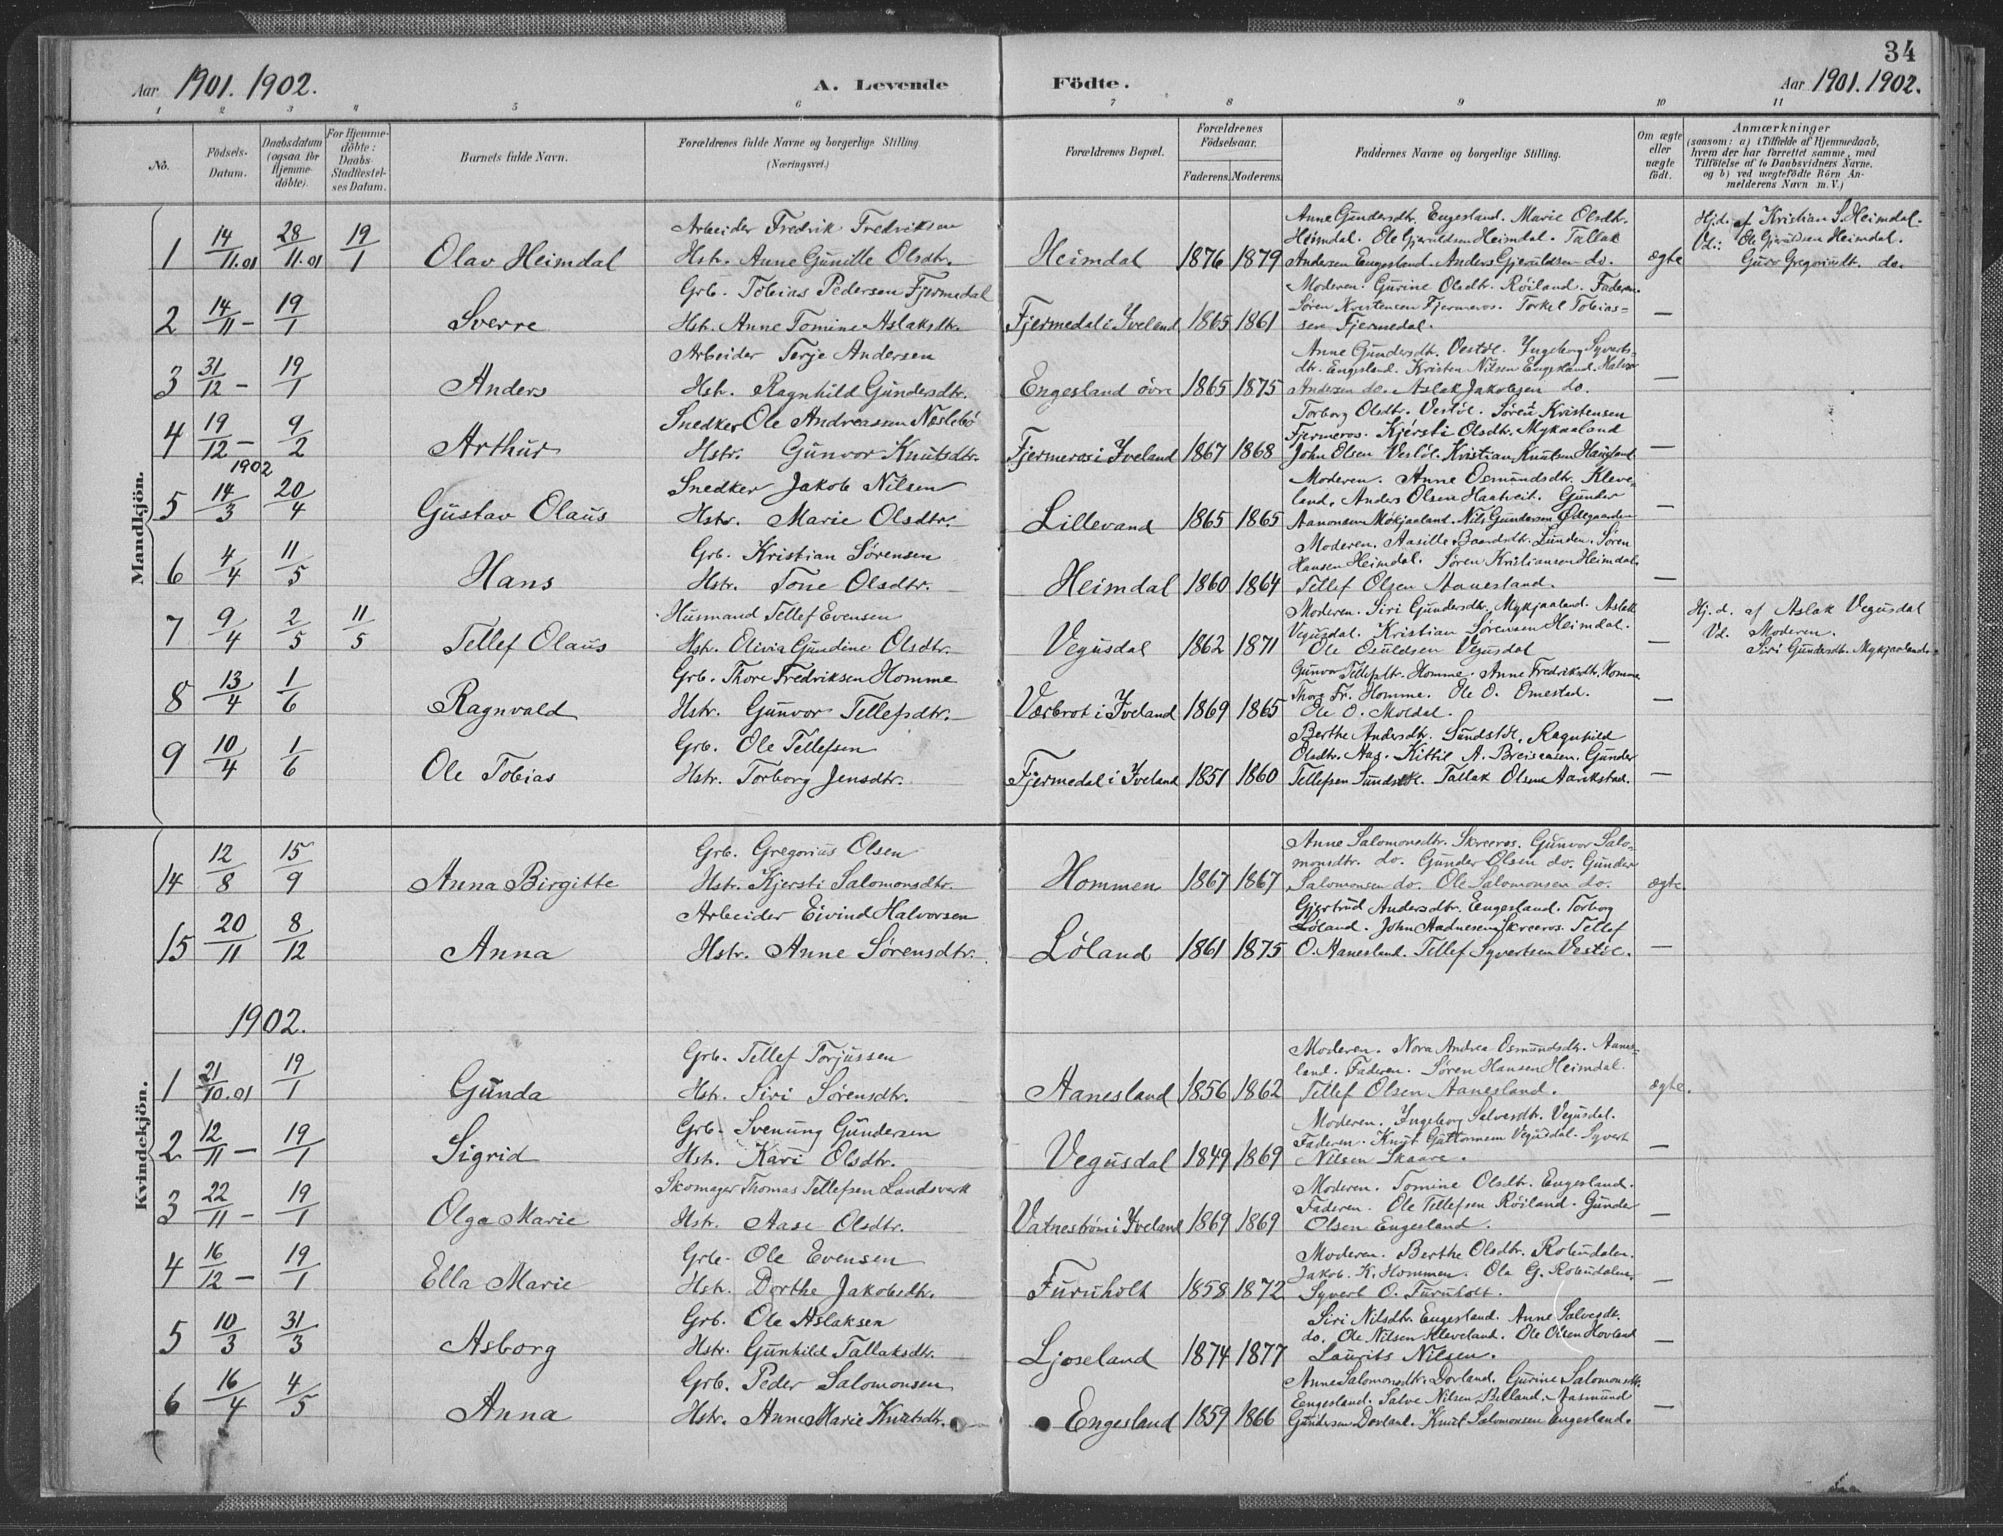 34
Aar 1901. 1902.
A. Levende Födte.
Aar 1901. 1902.
1 2 3 4 5 6 7 8 9 10 11
No.
Födsels-Datum.
Daabsdatum (ogsaa for Hjemmedöbte).
For Hjemmedöbte: Daabs-Stadfæstelses Datum.
Barnets fulde Navn.
Forældrenes fulde Navne og borgerlige Stilling (Næringsvei.)
Forældrenes Bopæl.
Forældrenes Födselsaar.
Faderens. Moderens.
Faddernes Navne og borgerlige Stilling.
Om ægte eller uægte født.
Anmærkninger
(saasom: a) i Tilfælde af Hjemmedaab, hvem der har forrettet samme, med Tilföielse af to Daabsvidners Navne, og b) ved uægtefödte Börn Anmelderens Navn m. V.)
Mandkjön.
1 14/11.01 28/11.01 19/1 Olav Heimdal
Arbeider Fredrik Fredriksen
Hstr. Anne Gunille Olsdtr.
Heimdal 1876 1879
Anne Gundersdtr. Engesland. Marie Olsdtr.
Heimdal. Ole Gjeruldsen Heimdal. Tallak
Andersen Engesland. Anders Gjeruldsen do.
ægte
Hj.d. af Kristian S. Heimdal.
Vd.: Ole Gjeruldsen Heimdal.
Guro Gregoriusdt. do.
2 14/11 - 19/1 Sverre
Grb. Tobias Pedersen Fjermedal
Hst. Anne Tomine Aslaksdtr.
Fjermedal i Iveland 1865 1861
Moderen. Gurine Olsdtr. Röiland. Faderen
Søren Kristensen Fjermeros. Torkel Tobias=
sen Fjermedal.
—
3 31/12 - 19/1 Anders
Arbeider Terje Andersen
Hst. Ragnhild Gundersdtr.
Engesland övre 1865 1875
Anne Gundersdtr. Vestöl. Ingeborg Syverts=
dtr. Engesland. Kristen Nilsen Engesland. Halvor
Andersen do. Aslak Jakobsen do.
—
4 19/12 - 9/2 Arthur
Snedker Ole Andreassen Neslebö
Hstr. Gunvor Knutsdtr.
Fjermeros i Iveland 1867 1868
Torborg Olsdtr. Vestöl. Søren Kristensen
Fjermeros. Kjersti Olsdtr. Mykaaland
John Olsen Vestöl. Kristian Knutsen Haugland
—
1902
5 14/3 20/4 Gustav Olaus
Snedker Jakob Nilsen
Hstr. Marie Olsdtr.
Lillevand 1865 1865
Moderen. Anne Osmundsdtr. Kleve=
land. Anders Olsen Haatveit. Gunder
Aanonsen Mökjaaland. Nils Gundersen Ødegaarden
—
6 4/4 11/5 Hans
Grb. Kristian Sørensen
Hstr. Tone Olsdtr.
Heimdal 1860 1864
Moderen. Aasille Baardsdtr. Lunden. Søren
Hansen Heimdal. Søren Kristiansen Heimdal.
Tellef Olsen Aanesland.
—
7 9/4 2/5 11/5 Tellef Olaus
Husmand Tellef Evensen
Hst. Olivia Gundine Olsdtr.
Vegusdal 1862 1871
Moderen. Siri Gundersdtr. Mykjaaland. Aslak
Vegusdal. Kristian Sørensen Heimdal.
Ole Osuldsen Vegusdal
—
Hj. d. af Aslak Vegusdal
Vd. Moderen.
Siri Gundersdtr. Mykjaaland
8 13/4 1/6 Ragnvald
Grb. Thore Fredriksen Homme
Hstr. Gunvor Tellefsdtr.
Værbrot i Iveland 1869 1865
Gunvor Tellefsdtr. Homme. Anne Fredriksdtr. Homme
Thore Fr. Homme. Ole O. Omestad.
Ole O. Moldal.
—
9 10/4 1/6 Ole Tobias
Grb. Ole Tellefsen
Hstr. Torborg Jensdtr.
Fjermedal i Iveland 1851 1860
Berthe Andersdtr. Sundstöl. Ragnhild
Olsdtr. Aas. Kittil A. Breisaasen. Gunder
Tellefsen Sundstöl. Tallak Olsen Aarikstad.
—
Kvindekjön.
14 12/8 15/9 Anna Birgitte
Grb. Gregorius Olsen
Hstr. Kjersti Salomonsdtr.
Hommen 1867 1867
Anne Salomonsdtr. Skreros. Gunvor Salo=
monsdtr. do. Gunder Olsen do. Gunder
Salomonsen do. Ole Salomonsen do.
ægte.
15 20/11 8/12 Anna
Arbeider Eivind Halvorsen
Hstr. Anne Sørensdtr.
Löland 1861 1875
Gjertrud Andersdtr. Engesland. Torborg
Löland. John Aadnesen Skreros. Tellef
O. Aanesland. Tellef Syvertsen Vestöl.
—
1902.
1 21/10.01 19/1 Gunda
Grb. Tellef Torjussen
Hst. Siri Sørensdtr.
Aanesland 1856 1862
Moderen. Nora Andrea Osmundsdtr. Aanes=
land. Faderen. Søren Hansen Heimdal.
Tellef Olsen Aanesland.
ægte.
2 12/11 - 19/1 Sigrid
Grb. Svenung Gundersen
Hst. Kari Olsdtr.
Vegusdal 1849 1869
Moderen. Ingeborg Salvesdtr. Vegusdal.
Faderen. Knut Guttormsen Vegusdal. Syvert
Nilsen Skaare.
—
3 22/11 - 19/1 Olga Marie
Skomager Thomas Tellefsen Landsverk
Hst. Aase Olsdtr.
Vatneström i Iveland 1869 1869
Moderen. Tomine Olsdtr. Engesland.
Faderen. Ole Tellefsen Röiland. Gunder
Olsen Engesland.
—
4 16/12 - 19/1 Ella Marie
Grb. Ole Evensen
Hst. Dorthe Jakobsdtr.
Furuholt 1858 1872
Moderen. Berthe Olsdtr. Robudalen.
Jakob. K. Hommen. Ole G. Robudalen.
Syvert O. Furuholt.
—
5 10/3 31/3 Asborg
Grb. Ole Aslaksen
Hstr. Gunhild Tallaksdtr.
Ljoseland 1874 1877
Siri Nilsdtr. Engesland. Anne Salvesdtr.
do. Ole Nilsen Kleveland. Ole Olsen Hovland
Laurits Nilsen.
—
6 16/4 4/5 Anna
Grb. Peder Salomonsen
Hstr. Anne Marie Knutsdtr.
Engesland 1859 1866
Anne Salomonsdtr. Dovland. Gurine Salomonsdtr.
Engesland. Salve Nilsen Belland. Aasmund
Gundersen Dovland. Knut Salomonsen Engesland.
—